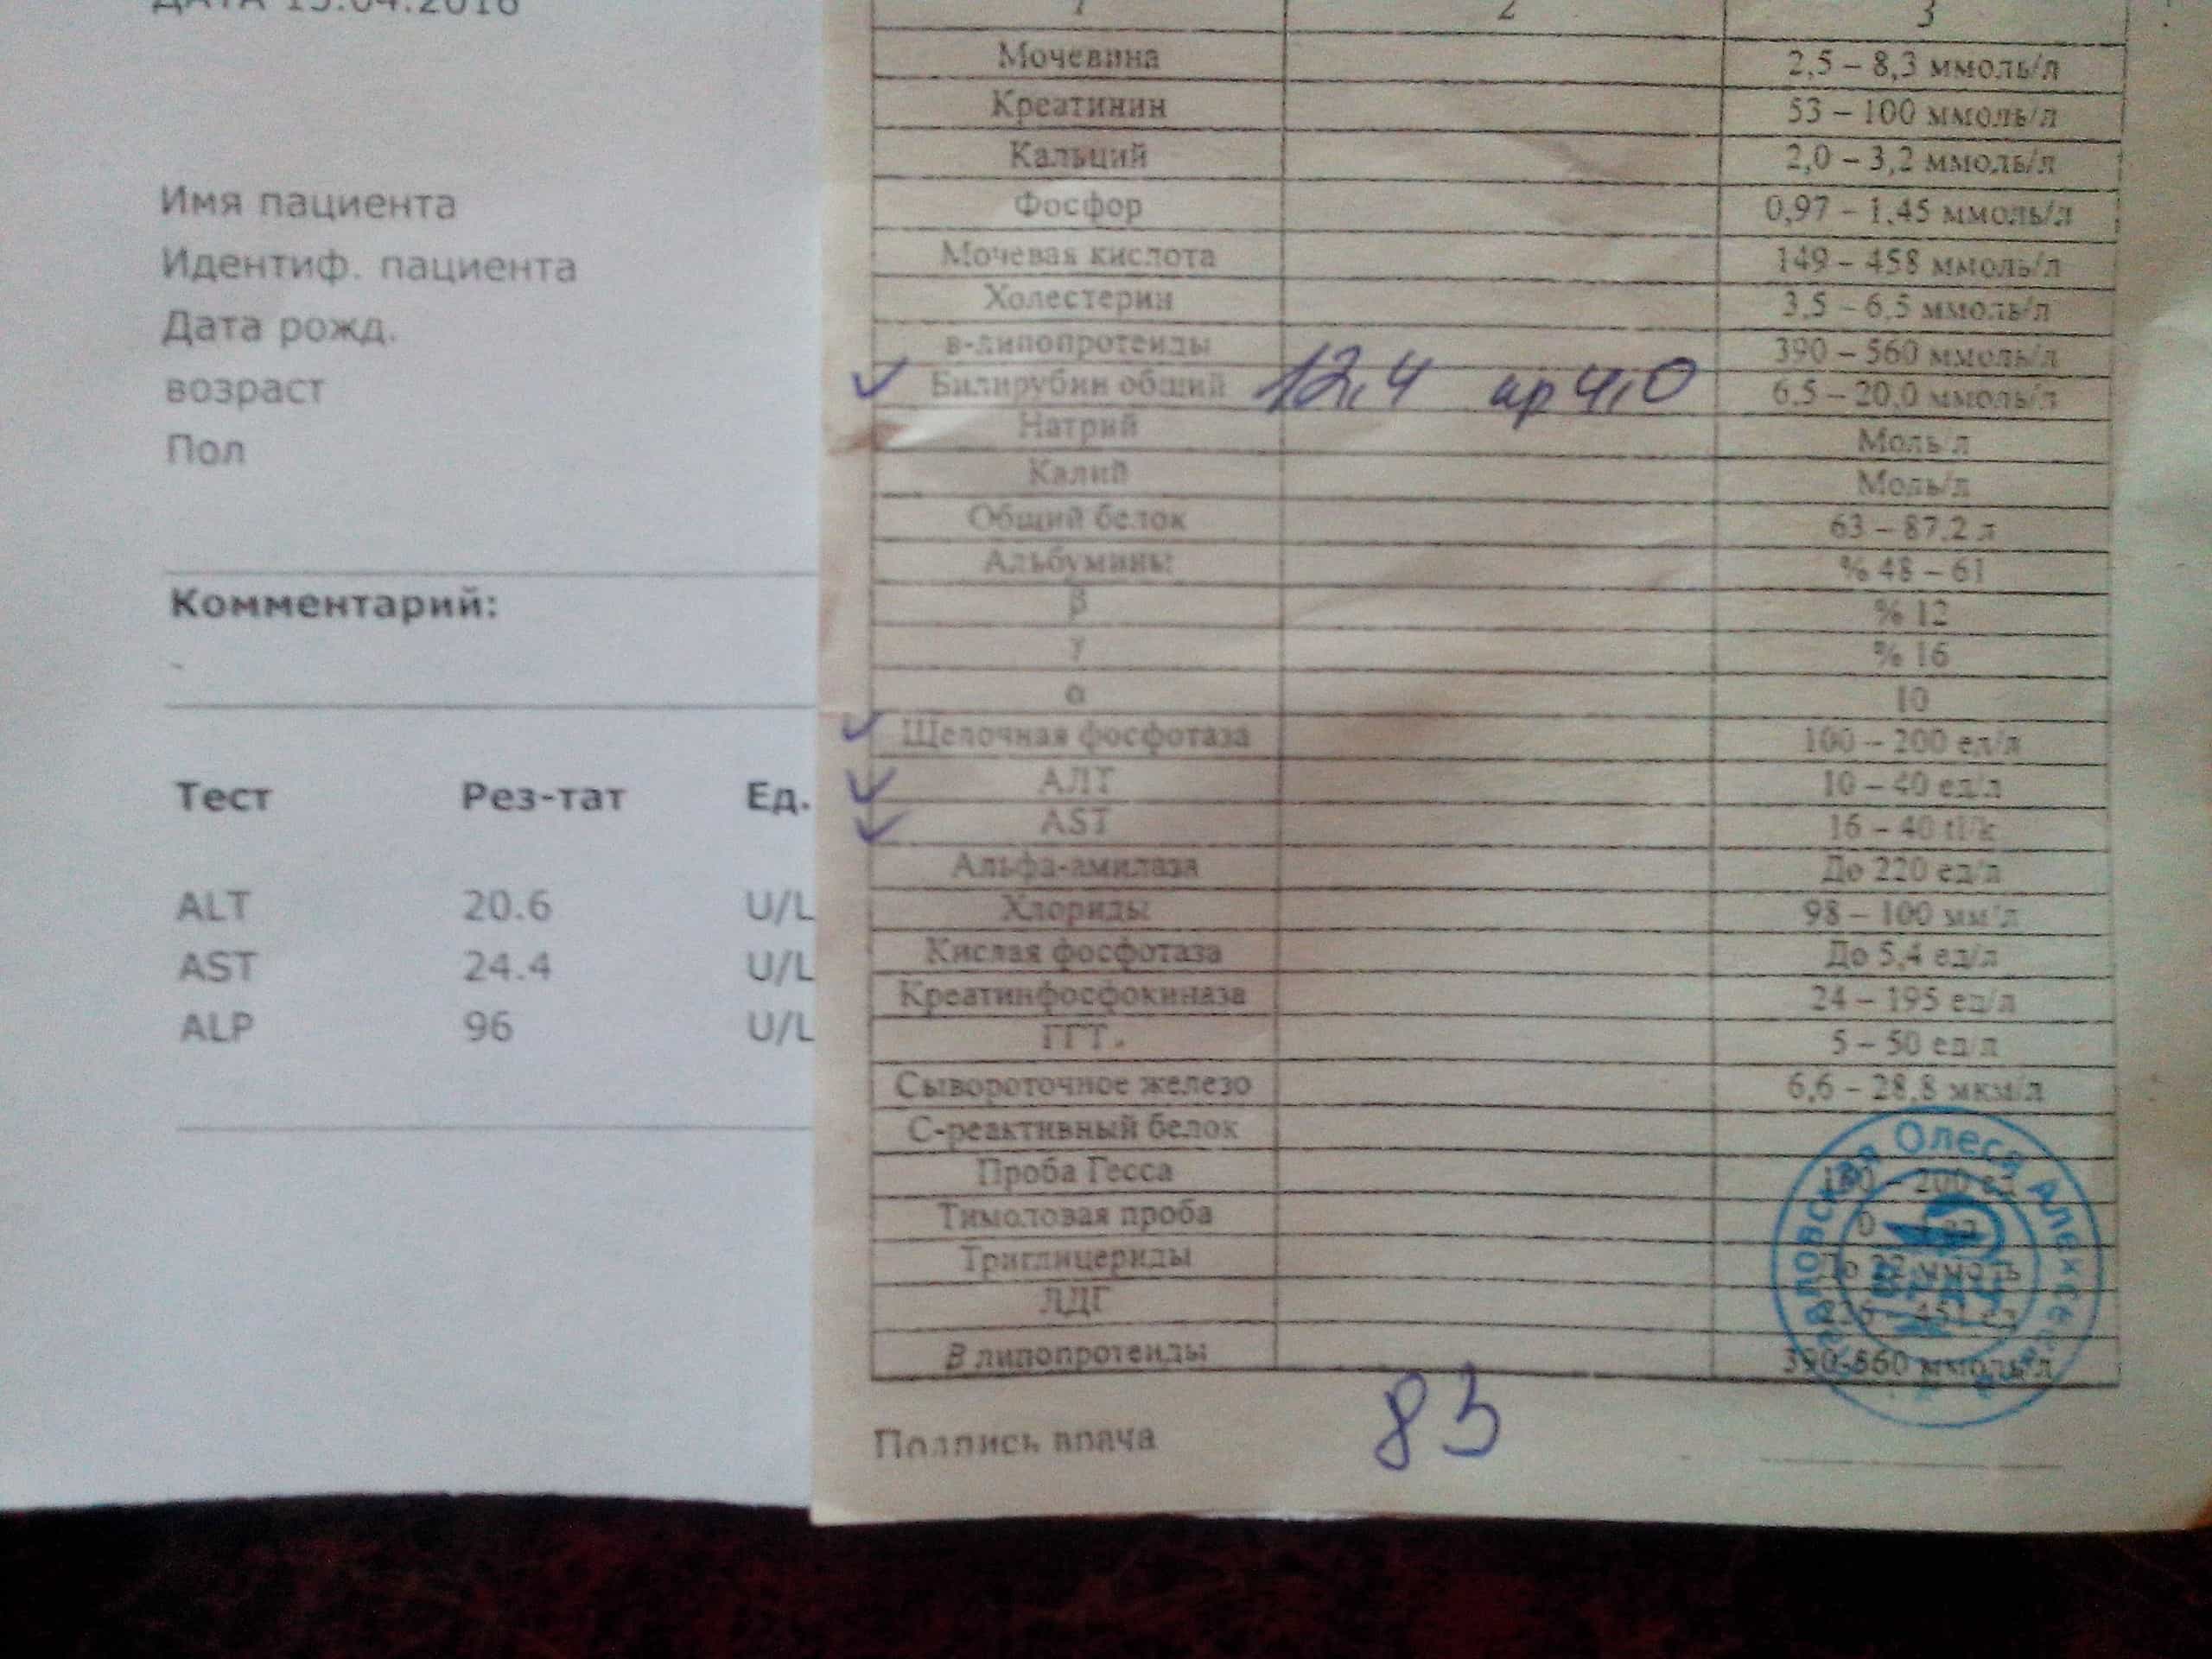 ДАТА 15.04.2016
Имя пациента
Идентиф. пациента
Дата рожд.
возраст
Пол
Комментарий:
-
Тест Рез-тат Ед.
ALT 20.6 U/L
AST 24.4 U/L
ALP 96 U/L
1 2 3
Мочевина 2,5 – 8,3 ммоль/л
Креатинин 53 – 100 ммоль/л
Кальций 2,0 – 3,2 ммоль/л
Фосфор 0,97 – 1,45 ммоль/л
Мочевая кислота 149 – 458 ммоль/л
Холестерин 3,5 – 6,5 ммоль/л
в-липопротеиды 390 – 560 ммоль/л
Билирубин общий 12,4 пр 4,0 6,5 – 20,0 ммоль/л
Натрий Моль/л
Калий Моль/л
Общий белок 63 – 87,2 л
Альбумины % 48 – 61
β % 12
γ % 16
α 10
Щелочная фосфотаза 100 – 200 ед/л
АЛТ 10 – 40 ед/л
AST 16 – 40 tl/k
Альфа-амилаза До 220 ед/л
Хлориды 98 – 100 мм/л
Кислая фосфотаза До 5,4 ед/л
Креатинфосфокиназа 24 – 195 ед/л
ГГТ. 5 – 50 ед/л
Сывороточное железо 6,6 – 28,8 мкм/л
С-реактивный белок
Проба Гесса – 200 ед
Тимоловая проба 0 –
Триглицериды
ЛДГ
В липопротеиды 390-560 ммоль/л
Подпись врача 83
Олеся